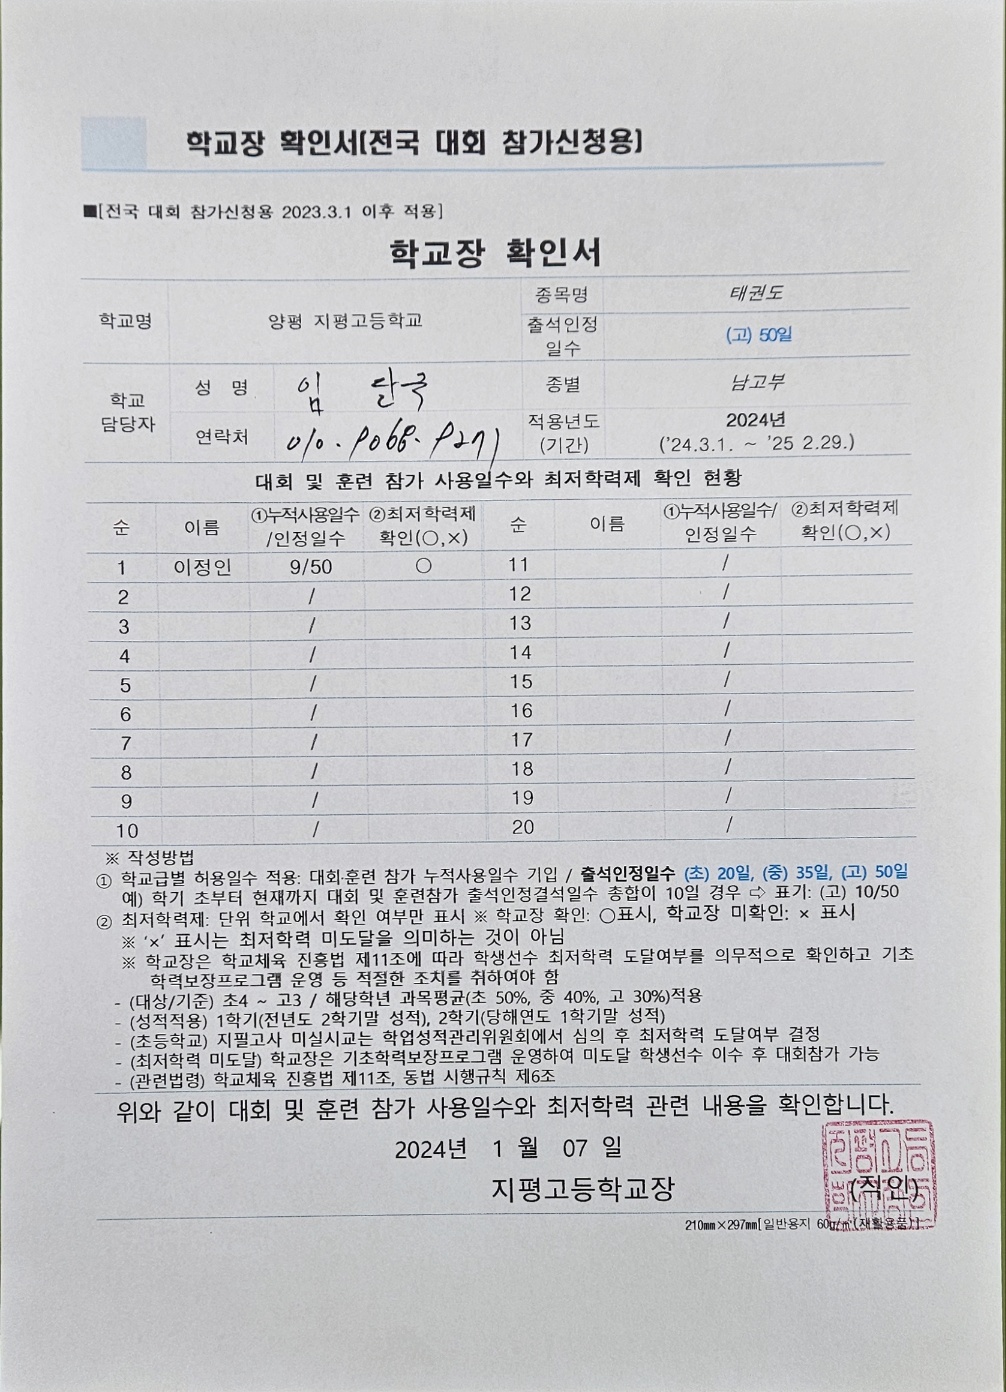 학교장 확인서[전국 대회 참가신청용]
■[전국 대회 참가신청용 2023.3.1 이후 적용]
학교장 확인서
학교명 양평 지평고등학교 종목명 태권도
출석인정 일수 (고) 50일
학교 담당자 성 명 임 달국 종별 남고부
연락처 적용년도 (기간) 2024년 ('24.3.1. ~ '25 2.29.)
대회 및 훈련 참가 사용일수와 최저학력제 확인 현황
순 이름 ①누적사용일수/인정일수 ②최저학력제 확인(○,×) 순 이름 ①누적사용일수/인정일수 ②최저학력제 확인(○,×)
1 이정인 9/50 ○ 11 /
2 / 12 /
3 / 13 /
4 / 14 /
5 / 15 /
6 / 16 /
7 / 17 /
8 / 18 /
9 / 19 /
10 / 20 /
※ 작성방법
① 학교급별 허용일수 적용: 대회·훈련 참가 누적사용일수 기입 / 출석인정일수 (초) 20일, (중) 35일, (고) 50일
예) 학기 초부터 현재까지 대회 및 훈련참가 출석인정결석일수 총합이 10일 경우 ⇨ 표기: (고) 10/50
② 최저학력제: 단위 학교에서 확인 여부만 표시 ※ 학교장 확인: ○표시, 학교장 미확인: × 표시
※ '×' 표시는 최저학력 미도달을 의미하는 것이 아님
※ 학교장은 학교체육 진흥법 제11조에 따라 학생선수 최저학력 도달여부를 의무적으로 확인하고 기초
학력보장프로그램 운영 등 적절한 조치를 취하여야 함
- (대상/기준) 초4 ~ 고3 / 해당학년 과목평균(초 50%, 중 40%, 고 30%)적용
- (성적적용) 1학기(전년도 2학기말 성적), 2학기(당해연도 1학기말 성적)
- (초등학교) 지필고사 미실시교는 학업성적관리위원회에서 심의 후 최저학력 도달여부 결정
- (최저학력 미도달) 학교장은 기초학력보장프로그램 운영하여 미도달 학생선수 이수 후 대회참가 가능
- (관련법령) 학교체육 진흥법 제11조, 동법 시행규칙 제6조
위와 같이 대회 및 훈련 참가 사용일수와 최저학력 관련 내용을 확인합니다.
2024년 1 월 07 일
지평고등학교장 (직인)
210㎜×297㎜[일반용지 60g/㎡(재활용품)]